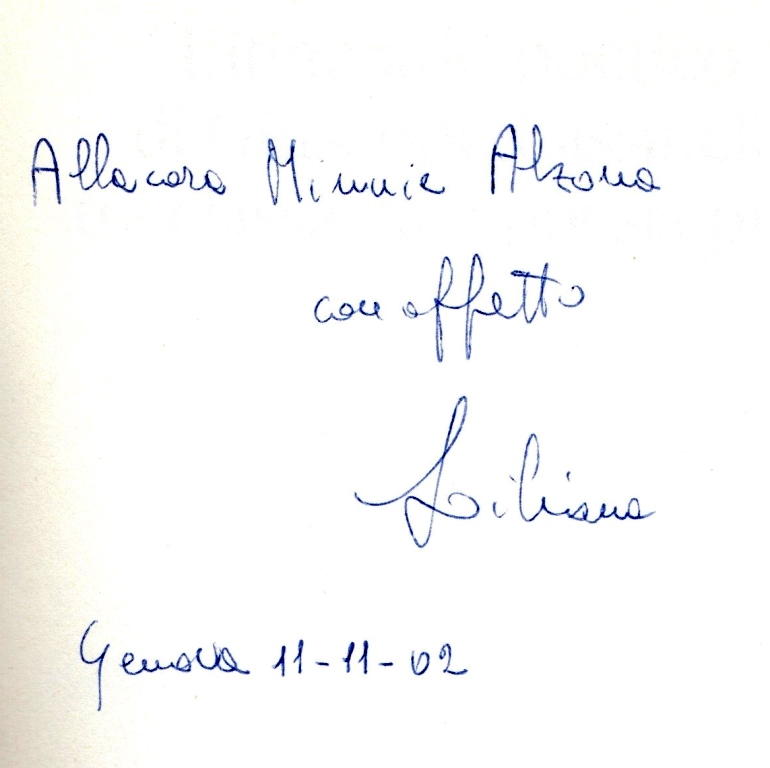 Alla cara Minnie Alzona
con affetto
Liliana
Genova 11-11-02